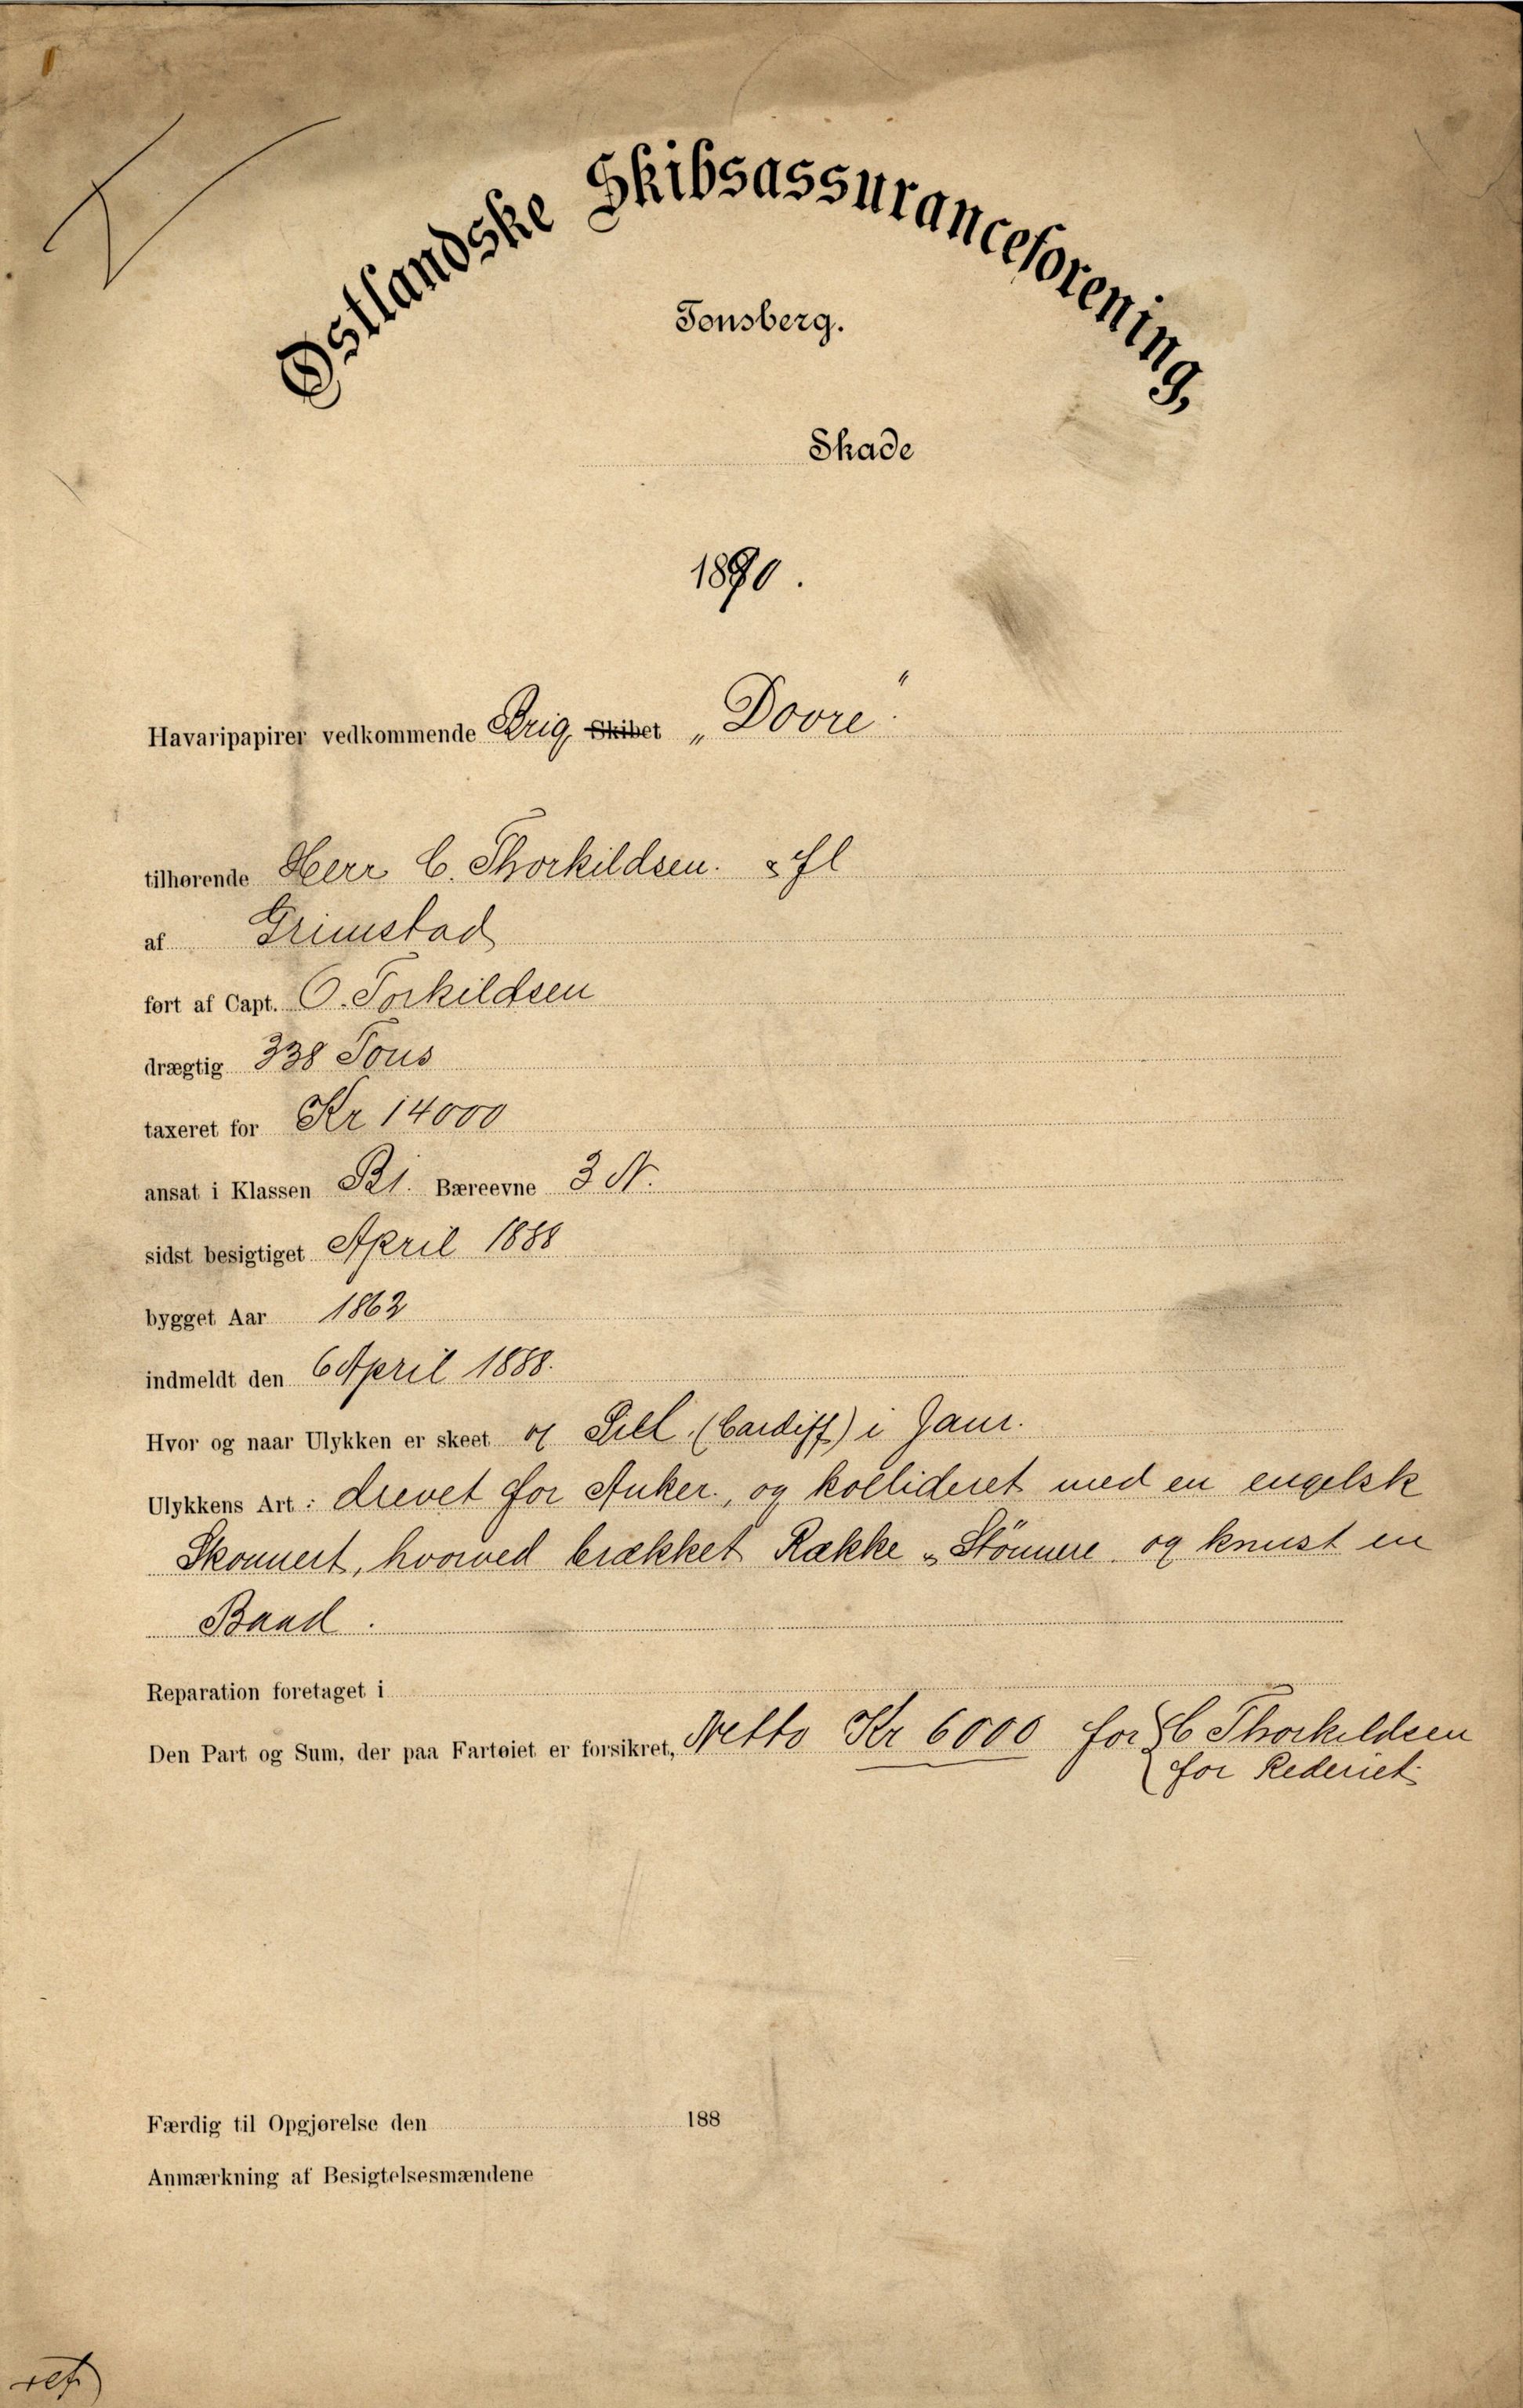 Østlandske Skibsassuranceforening,
Tønsberg.
Skade
1890.
Havaripapirer vedkommende Brig Skibet „Dovre“
tilhørende Herr C. Thorkildsen. & fl
af Grimstad
ført af Capt. O. Torkildsen
drægtig 338 Tons
taxeret for Kr 14000
ansat i Klassen B1. Bæreevne 3 N.
sidst besigtiget April 1888
bygget Aar 1862
indmeldt den 6 April 1888.
Hvor og naar Ulykken er skeet (Cardiff) i Janr.
Ulykkens Art: drevet for Anker, og kollideret med en engelsk
Skonnert, hvorved brækket Række & Stönnere og knust en
Baad.
Reparation foretaget i
Den Part og Sum, der paa Fartøiet er forsikret, Netto Kr 6000 for C Thorkildsen
for Rederiet.
Færdig til Opgjørelse den 188
Anmærkning af Besigtelsesmændene